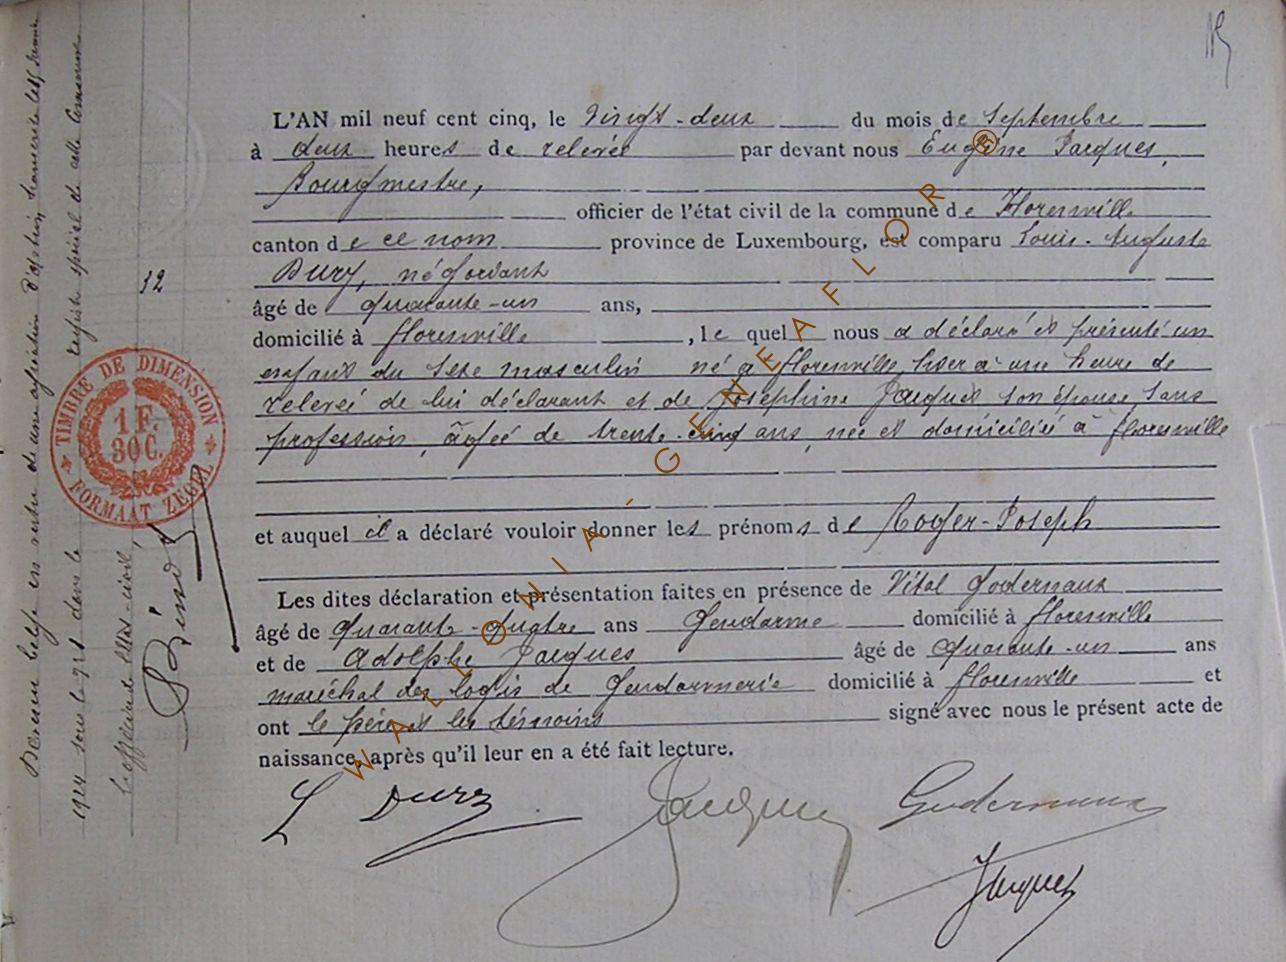 L'AN mil neuf cent cinq, le Vingt-deux du mois de Septembre
à deux heures de relevée par devant nous Eugène Jacques,
Bourgmestre,
officier de l'état civil de la commune de Florenville
canton de ce nom province de Luxembourg, est comparu Louis-Auguste
Dury, négociant
âgé de quarante-un ans,
domicilié à florenville, lequel nous a déclaré et présenté un
enfant du sexe masculin né à florenville, hier à une heure de
relevée de lui déclarant et de Joséphine Jacques son épouse, sans
profession, âgée de trente-cinq ans, née et domiciliée à florenville
et auquel il a déclaré vouloir donner les prénoms de Roger-Joseph
Les dites déclaration et présentation faites en présence de Vital Godernaux
âgé de Quarante-Quatre ans Gendarme domicilié à florenville
et de Adolphe Jacques âgé de Quarante-un ans
maréchal des logis de Gendarmerie domicilié à florenville et
ont le père et les témoins signé avec nous le présent acte de
naissance, après qu'il leur en a été fait lecture.
L Dury
Jacques
Godernaux
Jacques
32
TIMBRE DE DIMENSION
1 F.
30 C.
FORMAAT ZEGEL
Devenu belge en vertu d'une déclaration d'option transcrite le
1924 sous le n° dans le registre spécial de cette commune
L'officier de l'état-civil,
WALLONIA - GENEAFLOR ®